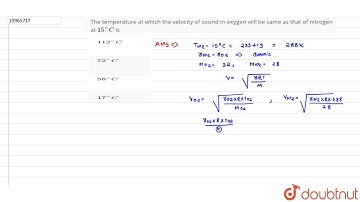 10965717
The temperature at which the velocity of sound in oxygen will be same as that of nitrogen
at 15°C is
112°C
72°C
56°C
17°C
Ans ⇒ T_N2 = 15°C = 273+15 = 288K
γ_N2 = γ_O2 ⇒ diatomic
M_O2 = 32, M_N2 = 28
V = √(γRT/M)
V_O2 = √(γ_O2×R×T_O2/M_O2), V_N2 = √(γ_N2×R×288/28)
γ_N2×R×T_O2
doubtnut